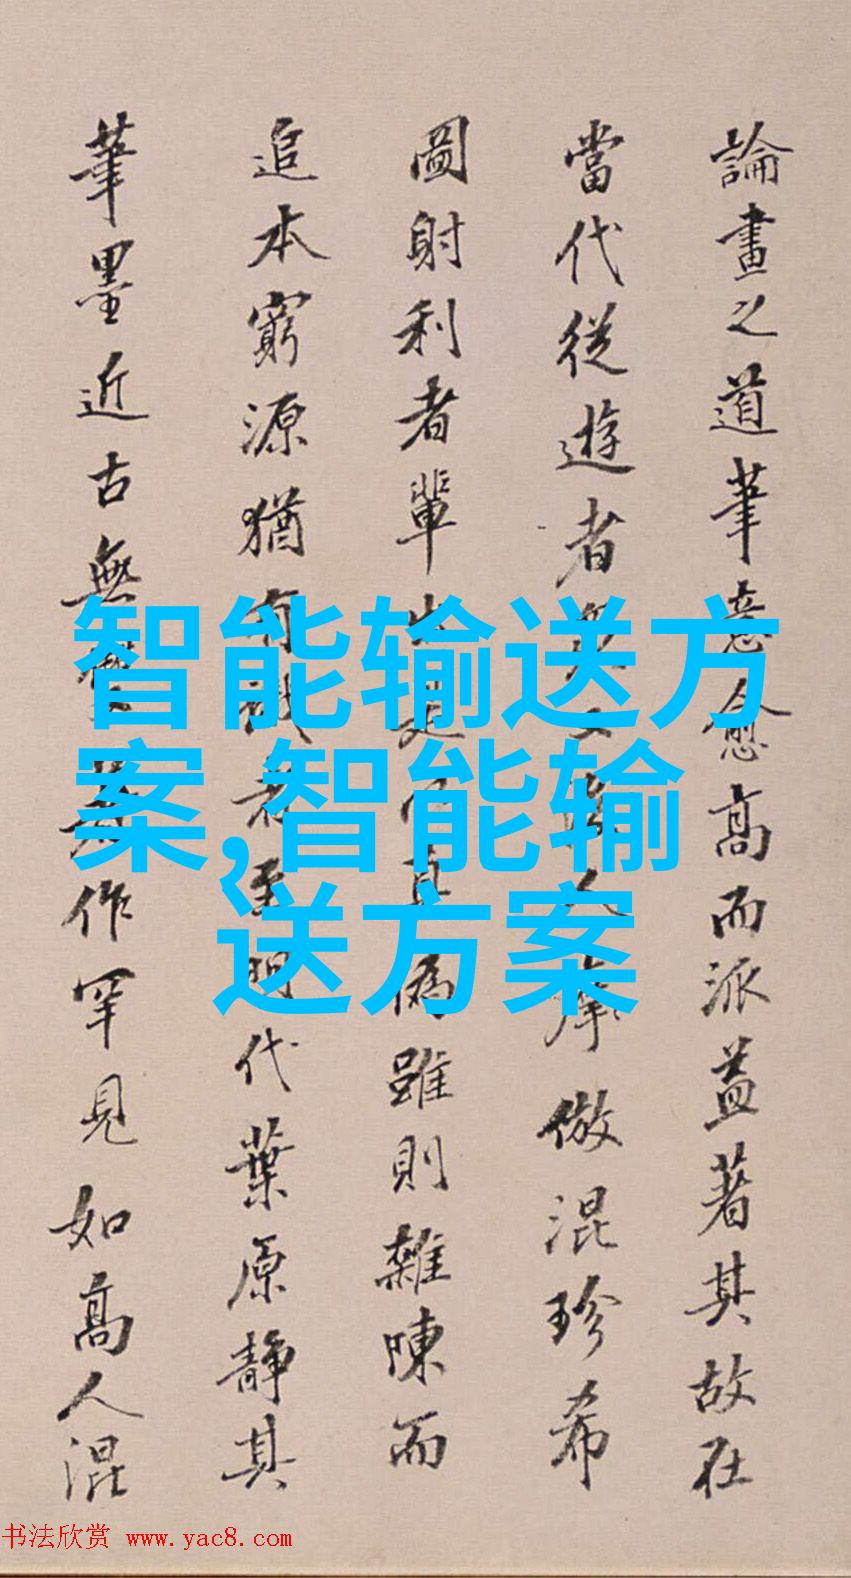 論畫之道筆意愈高而派益著其故在
當代從遊者摹倣混珍希
圖射利者輩出真偽雖則雜陳而
追本窮源猶有識者明代葉原靜其
筆墨近古無作罕見如高人混
智能输送方
案,智能输
送方案
书法欣赏 www.yac8.com